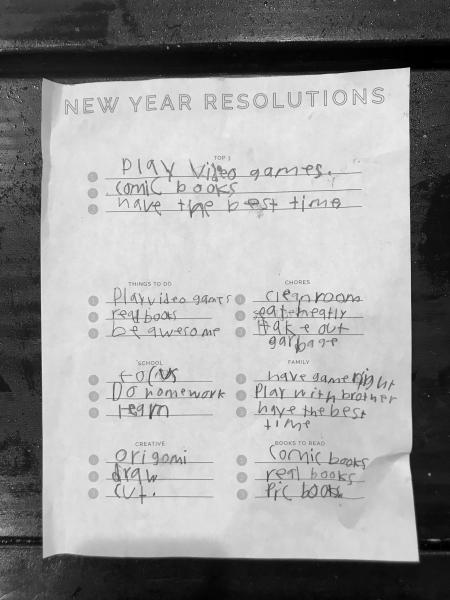 NEW YEAR RESOLUTIONS
TOP 3
Play video games.
comic books
have the best time
THINGS TO DO
Play video games
read books
be awesome
CHORES
clean room
eat neatly
take out
garbage
SCHOOL
focus
Do homework
learn
FAMILY
have game night
Play with brother
have the best
time
CREATIVE
origami
draw
cut.
BOOKS TO READ
Comic books
real books
Pic books